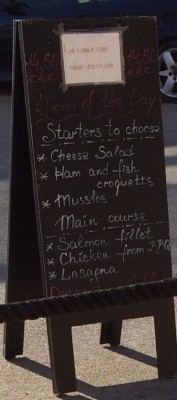 14,50
Menu of the Day
Starters to choose
* Cheese Salad
* Ham and fish
croquetts
* Mussles
Main course
* Salmon fillet
* Chicken from
* Lasagna